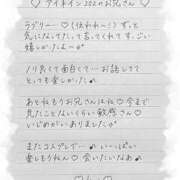 ♡ アイネイン202のお兄さん ♡
ラブリー♡(伝われ〜!)ずっと
気になってたって言ってくれてすっごい
嬉しかったよ〜
ノリ良くて面白くて…お話してて
とっても楽しかった♪
あと私もうお兄さんは♡今まで
見たことないくらい敏感さん♡
いじめがいありました
またコスプレで…いっぱい
楽しもうねん♡会いたいなぁ♪